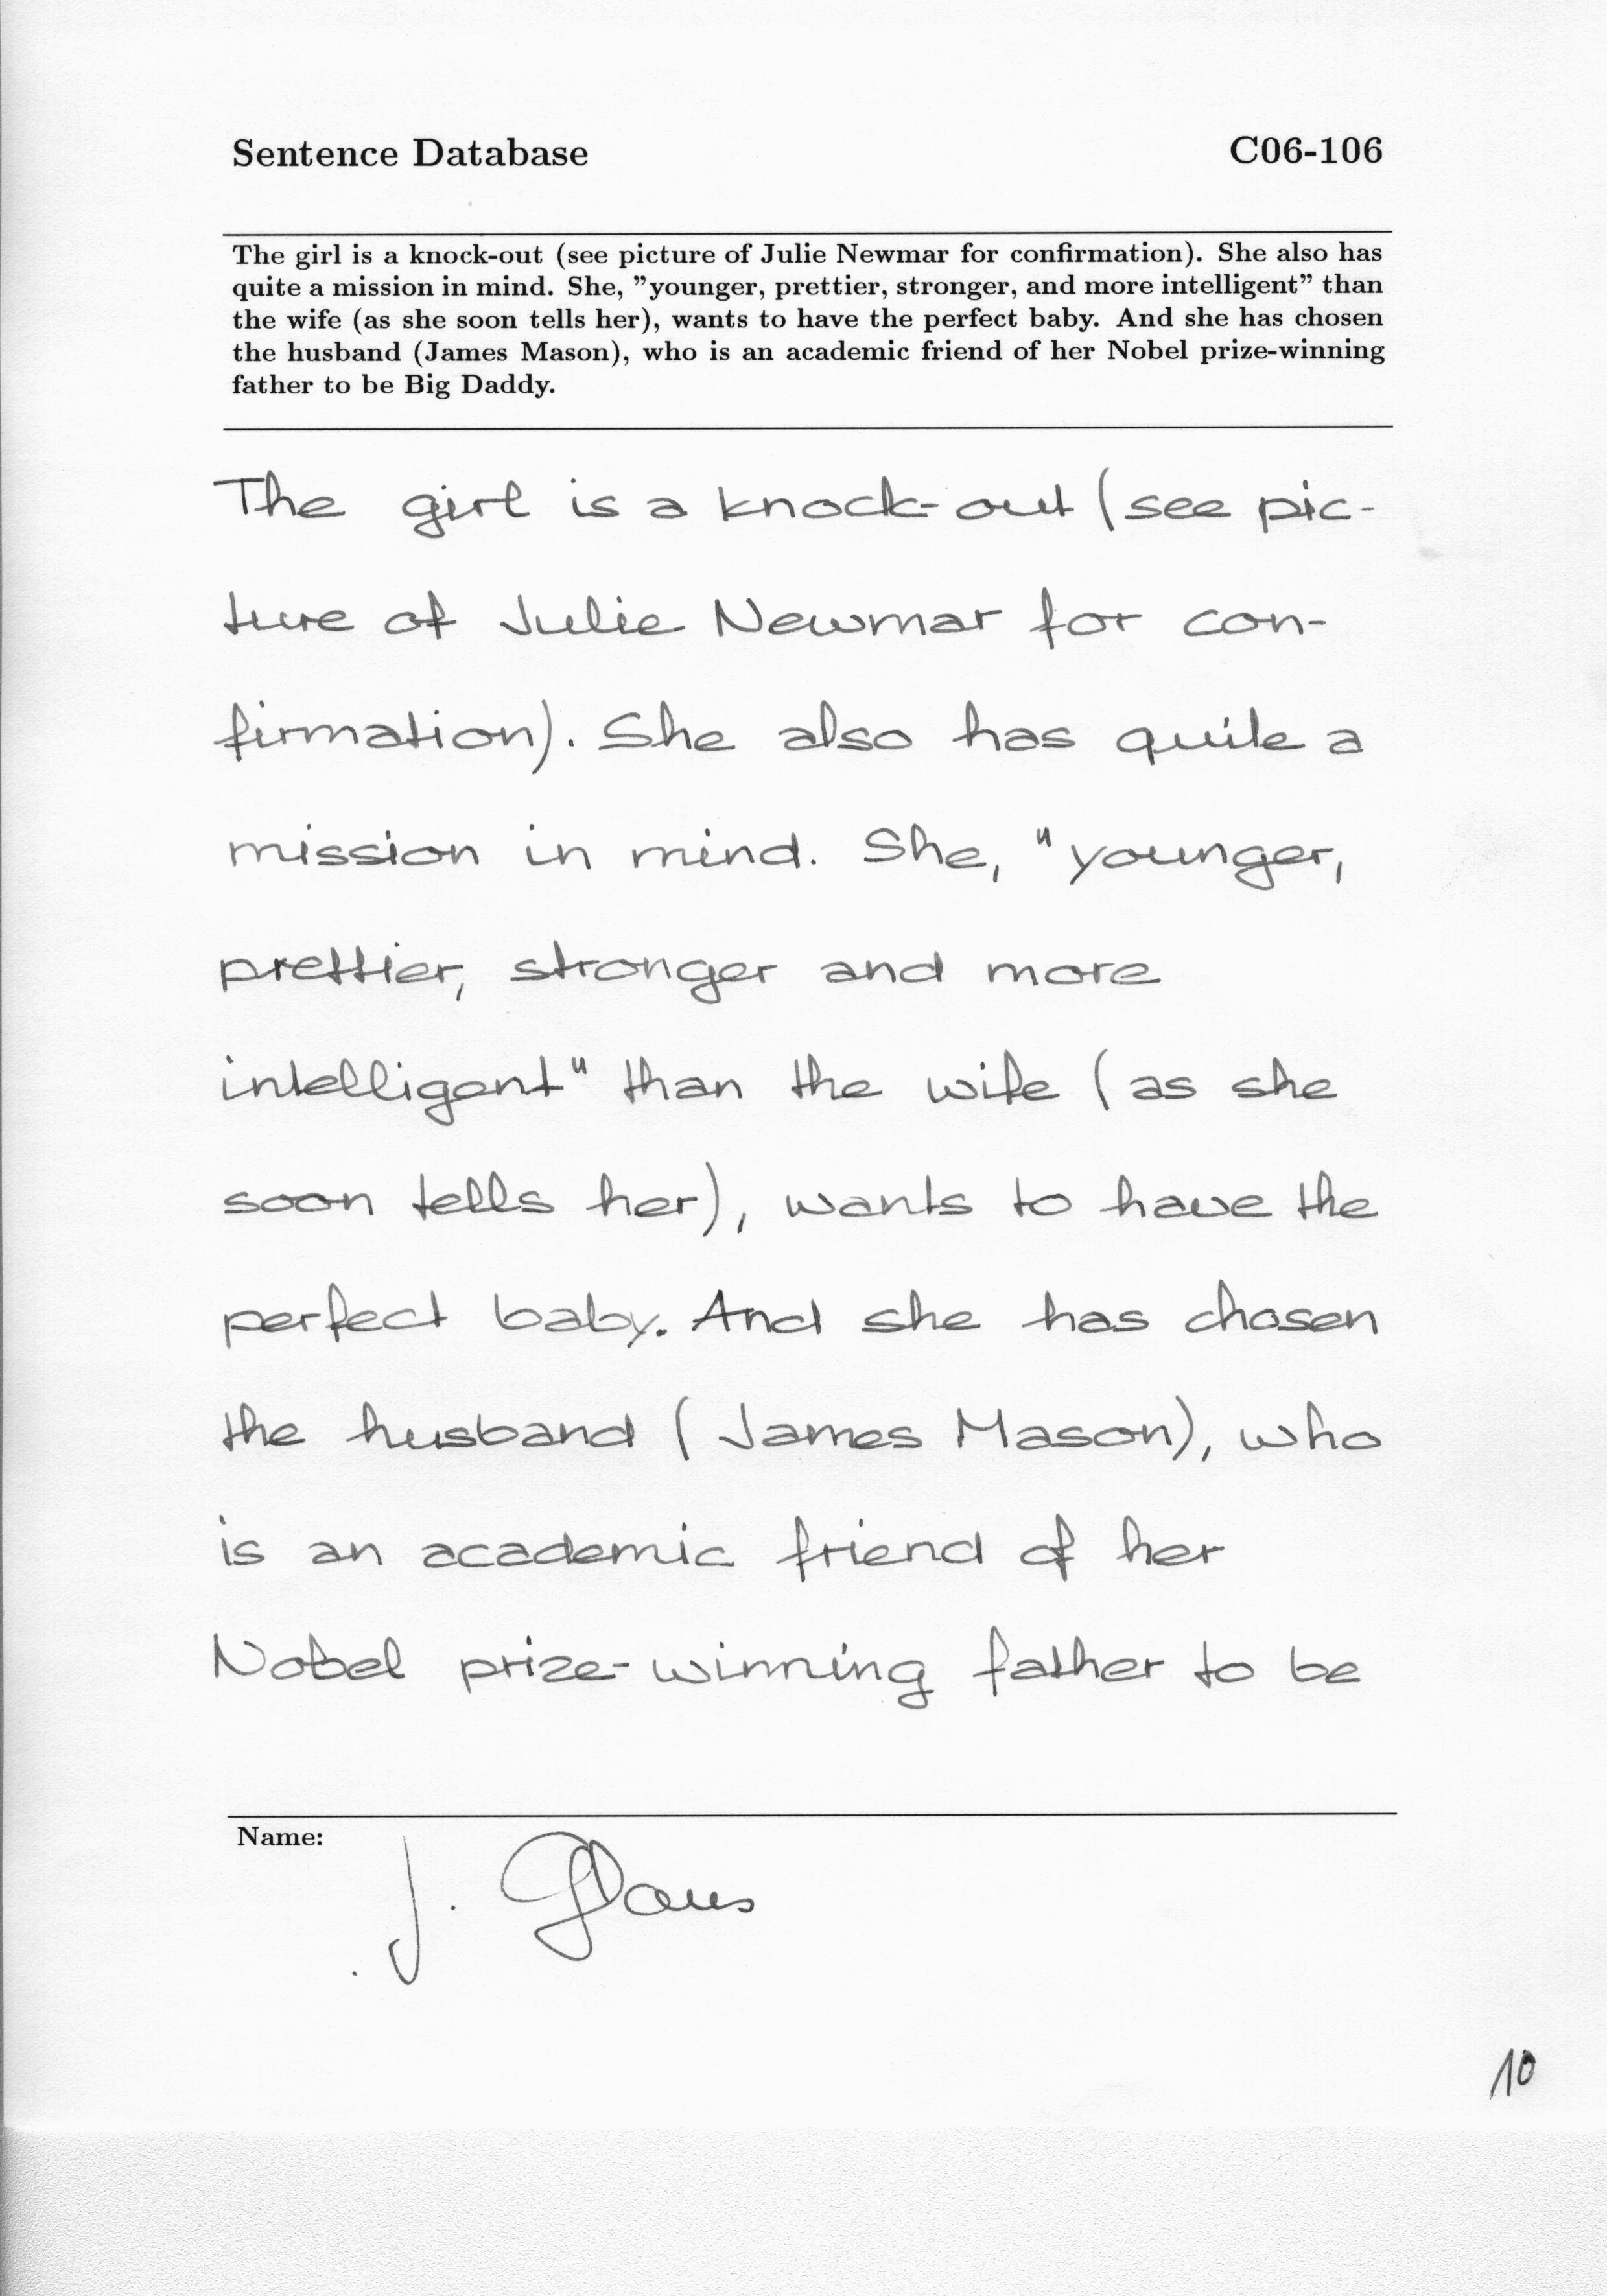 Sentence Database C06-106
The girl is a knock-out (see picture of Julie Newmar for confirmation). She also has
quite a mission in mind. She, ”younger, prettier, stronger, and more intelligent” than
the wife (as she soon tells her), wants to have the perfect baby. And she has chosen
the husband (James Mason), who is an academic friend of her Nobel prize-winning
father to be Big Daddy.
The girl is a knock-out (see pic-
ture of Julie Newmar for con-
firmation). She also has quite a
mission in mind. She, "younger,
prettier, stronger and more
intelligent" than the wife (as she
soon tells her), wants to have the
perfect baby. And she has chosen
the husband (James Mason), who
is an academic friend of her
Nobel prize-winning father to be
Name: J. Glaus
10